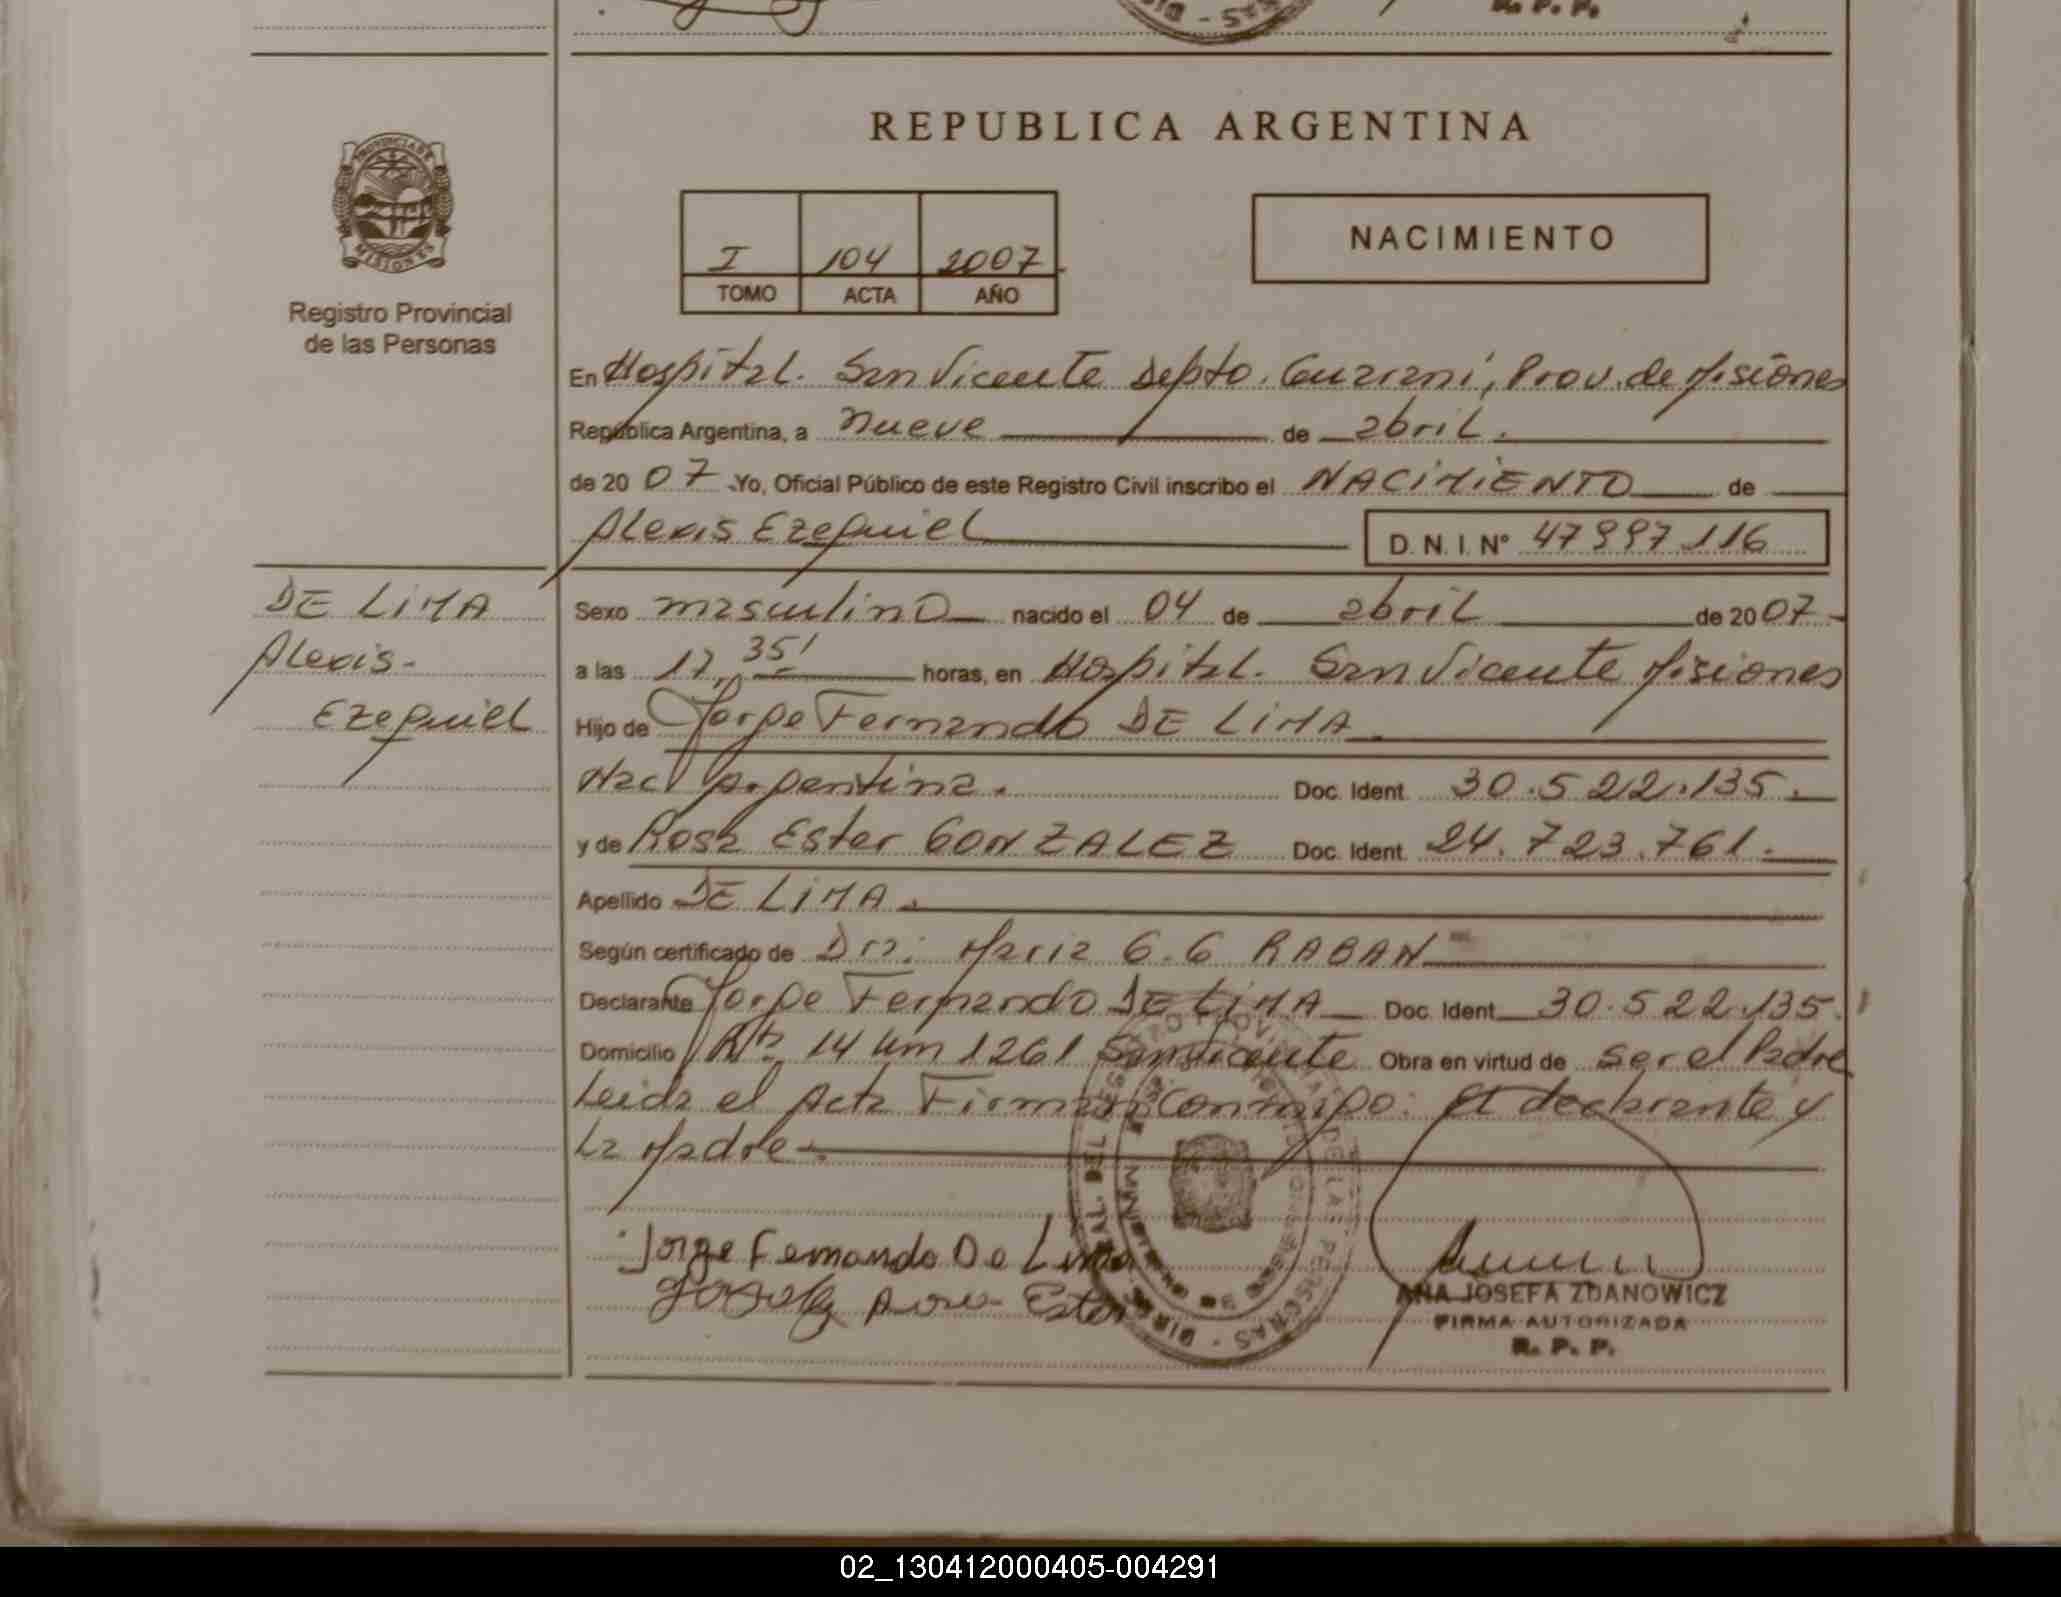 R. P. P.
REPUBLICA ARGENTINA
PROVINCIA DE
MISIONES
Registro Provincial
de las Personas
I 104 2007
TOMO ACTA AÑO
NACIMIENTO
En Hospital. San Vicente Depto. Guarani, Prov. de Misiones
República Argentina, a nueve de abril.
de 20 07 Yo, Oficial Público de este Registro Civil inscribo el NACIMIENTO de
Alexis Ezequiel D. N. I. N° 47997116
DE LIMA
Alexis-
Ezequiel
Sexo masculino nacido el 04 de abril de 20 07
a las 17, 35' horas, en Hospital. San Vicente Misiones
Hijo de Jorge Fernando DE LIMA
Nac. Argentina. Doc. Ident. 30.522.135.
y de Rosa Ester GONZALEZ Doc. Ident. 24.723.761.
Apellido DE LIMA.
Según certificado de Dra: Maria G.G RABAN
Declarante Jorge Fernando DE LIMA Doc. Ident. 30.522.135.
Domicilio Rta. 14 km 1261 San Vicente Obra en virtud de ser el Padre
Leida el Acta Firman Conmigo: El declarante y
La Madre-.
Jorge Fernando De Lima
Rosa Ester
ANA JOSEFA ZDANOWICZ
FIRMA AUTORIZADA
R. P. P.
02_130412000405-004291